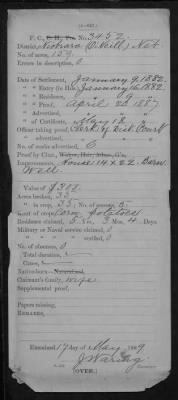 (4-692.)
F. C., No. 3452.
District, Niobrara (O'Neill) Neb
No. of acres, 159.
Errors in description, 0
Date of Settlement, January 9, 1882.
" " Entry (or filing), January 16, 1882.
" " Residence, " 9 "
" " Proof, April 20 1887
" " Advertisement,
" of Certificate, May 18 "
Officer taking proof, Clerk of Dist Court
" " advertised, " " "
No. of weeks advertised, 6
Proof by Claimant,
Improvements, House 14x22 Barn
Well
Value of $300.
Acres broken, 35
" in crop, 35;
Kind of crops,
Residence claimed, 5 Yrs. 3 Mos. Days.
Military or Naval service claimed, 0
" " " " verified, 0
No. of absences, 0
Total duration,
Cause,
Native-born
Claimant's family, Wife
Supplemental proof,
Papers missing,
REMARKS,
Examined 17 day of May, 1889
(OVER.)